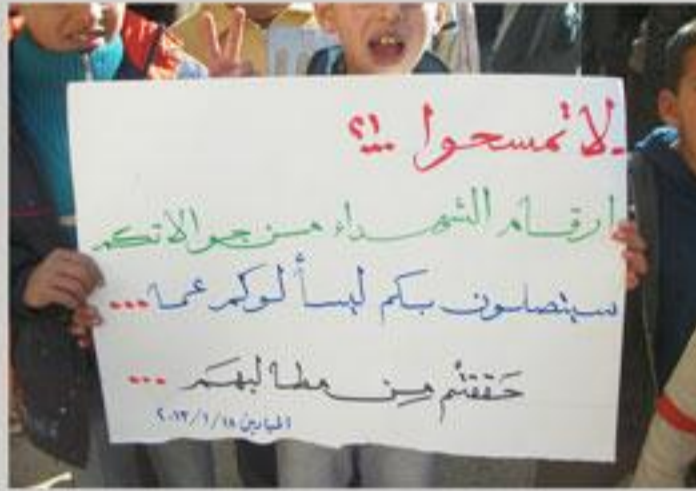 لا تمسحوا ...!؟
ارقام الشهداء من جوالاتكم
سيتصلون بكم ليسألوكم عما ...
حَققتُم مِن مطالبهَم ...
الميادين ٢٠١٣/١/١٨